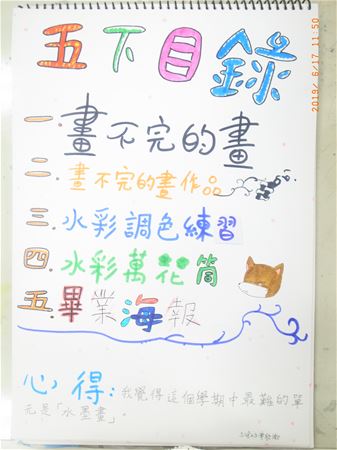 五下目錄
一.畫不完的畫
二.畫不完的畫作品
三.水彩調色練習
四.水彩萬花筒
五.畢業海報
心得:我覺得這個學期中最難的單
元是「水墨畫」。
2019/ 6/17 11:50